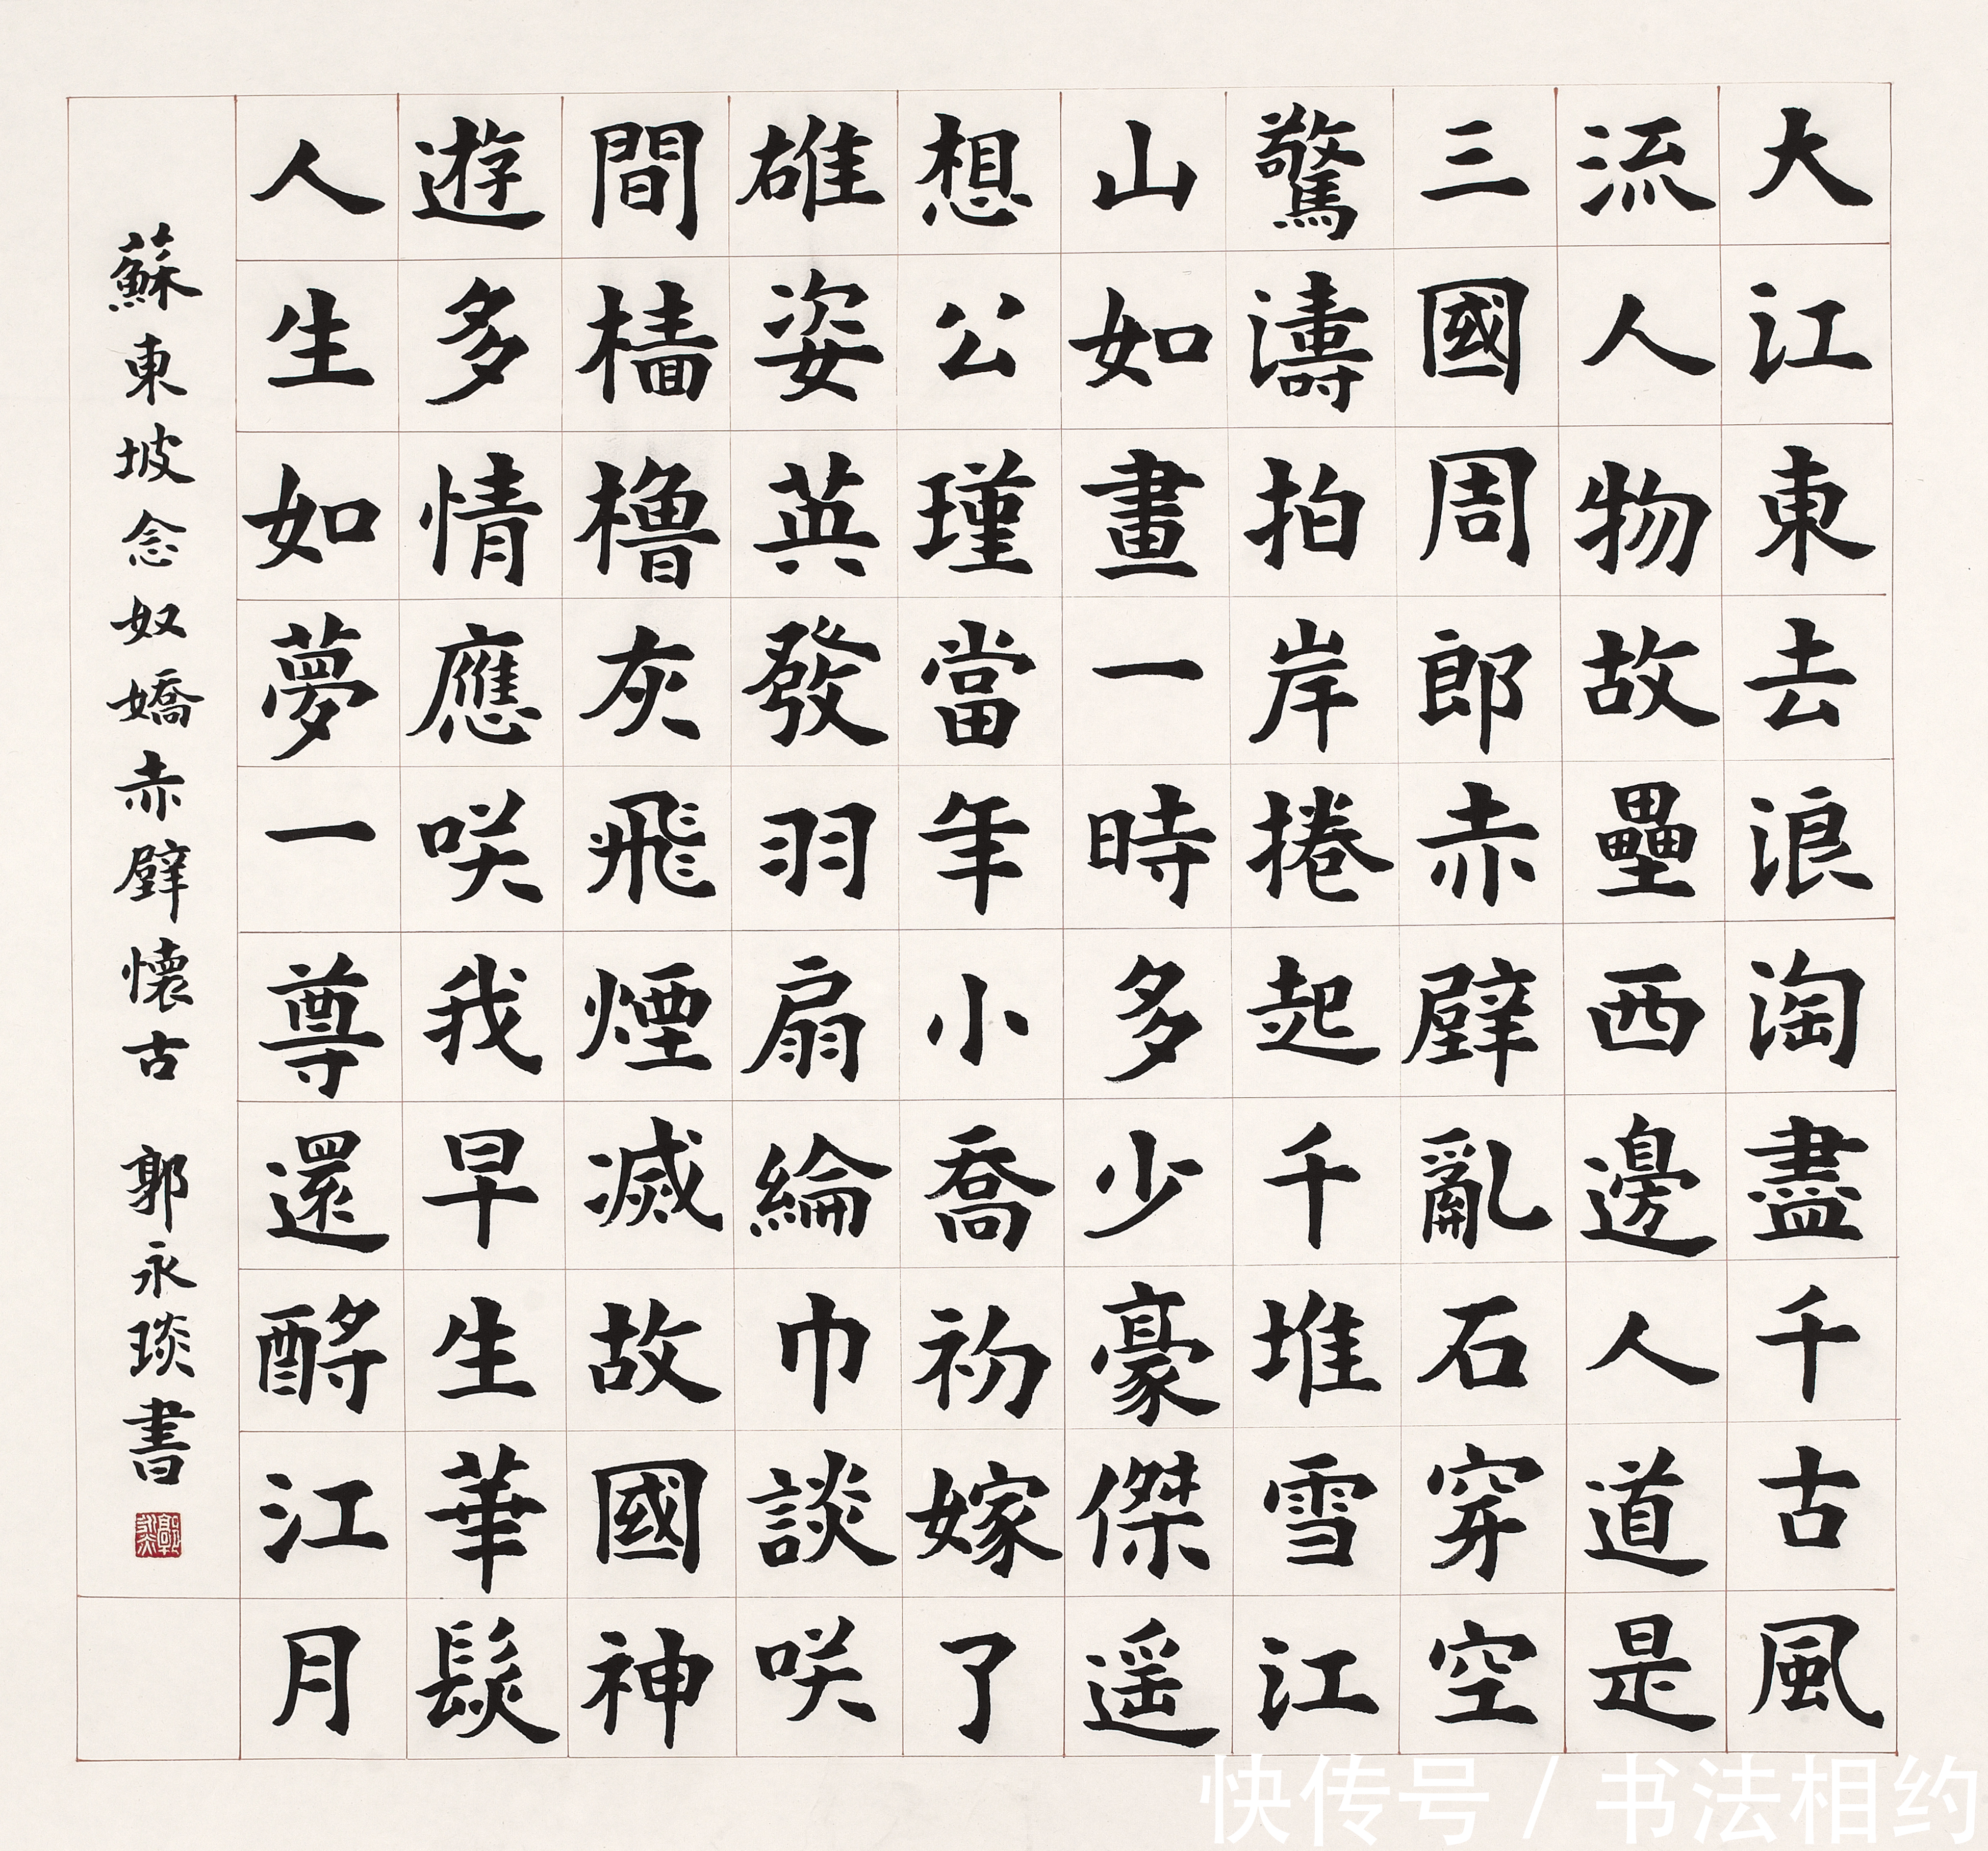 大江東去浪淘盡千古風
流人物故壘西邊人道是
三國周郎赤壁亂石穿空
驚濤拍岸捲起千堆雪江
山如畫一時多少豪傑遥
想公瑾當年小喬初嫁了
雄姿英發羽扇綸巾談咲
間檣櫓灰飛煙滅故國神
遊多情應咲我早生華髮
人生如夢一尊還酹江月
蘇東坡念奴嬌赤壁懷古 郭永琰書
快传号 / 书法相约